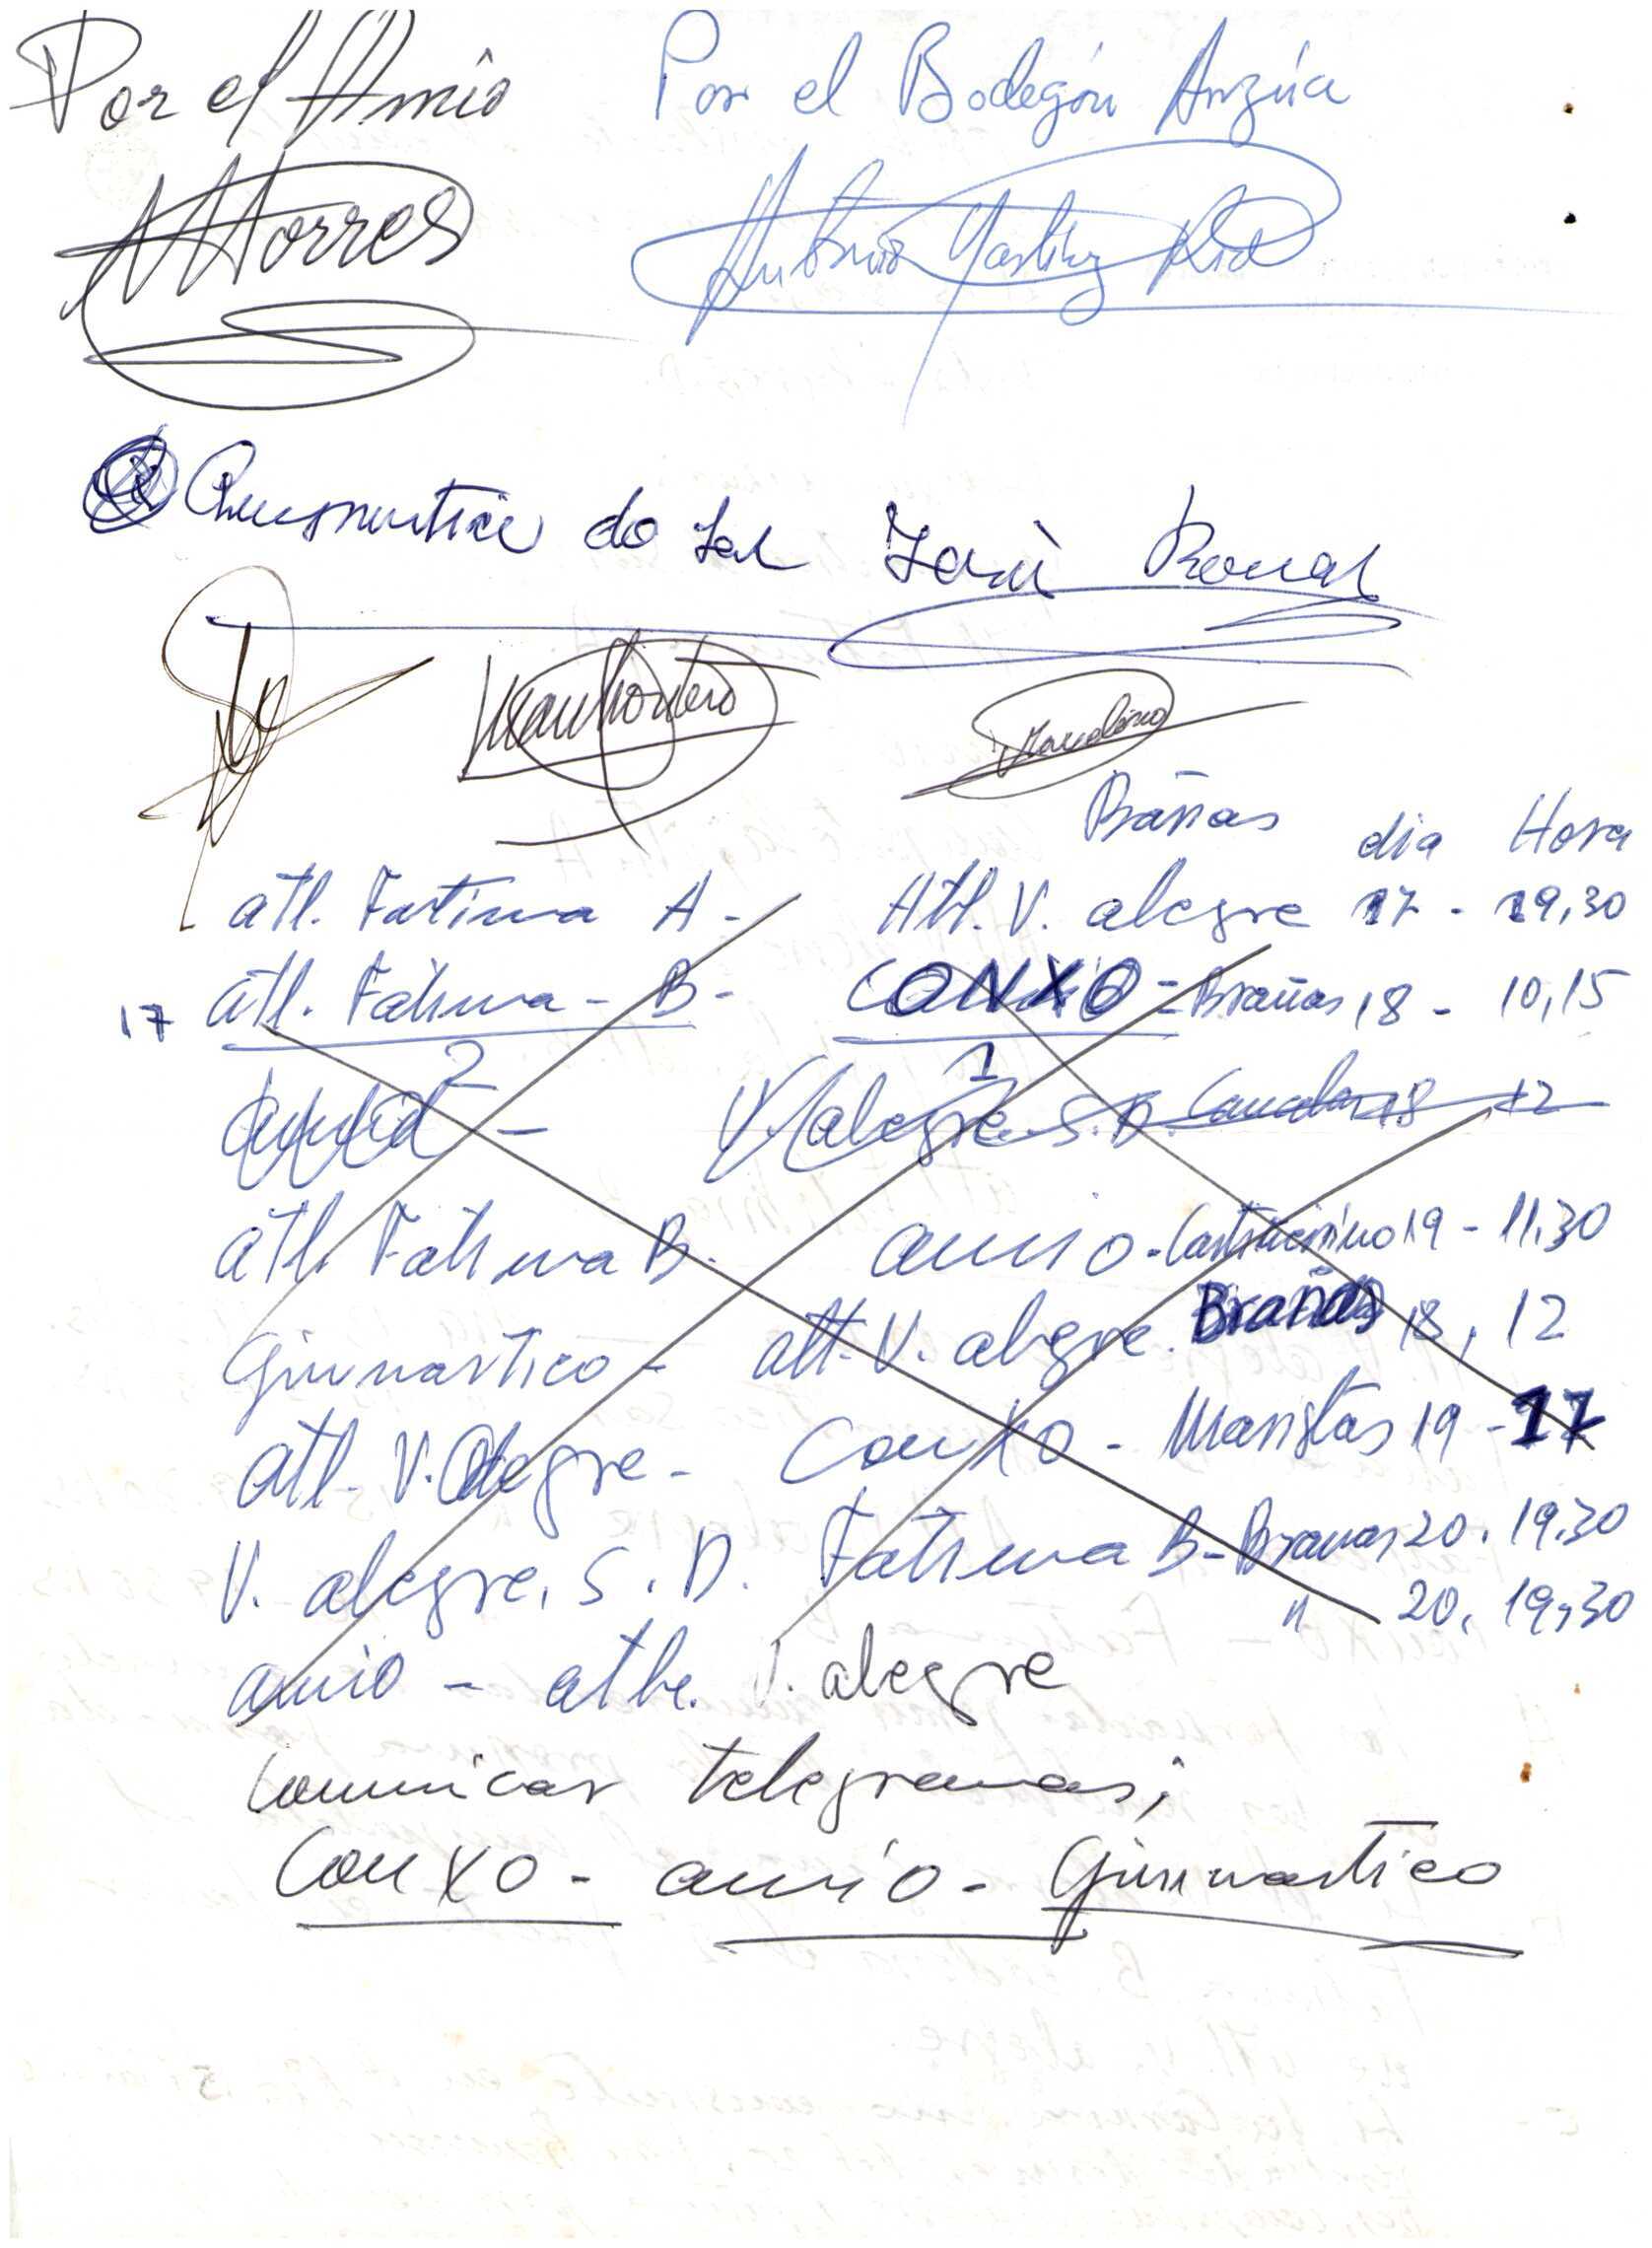 Por el Amio
Por el Bodegón Arzúa
M Torres
Antonio Martinez
do Sar José
Juan Montero
Brañas dia Hora
atl. Fatima A - Atl. V. alegre 17 - 19,30
17 atl. Fatima - B - CONXO - Brañas 18 - 10,15
2 1
amio - V. alegre S.D. 18 12
atl. Fatima B. amio - 19 - 11,30
Gimnastico - atl. V. alegre. Brañas 18, 12
atl. V. Alegre - Conxo - Maristas 19 - 17
V. alegre, S. D. Fatima B - Branas 20. 19,30
" 20, 19,30
amio - atle. V. alegre
Comunicar telegramas;
Conxo - amio - Gimnastico